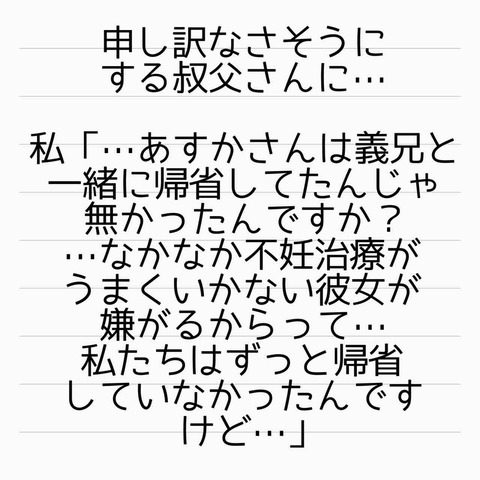 申し訳なさそうに
する叔父さんに…
私「…あすかさんは義兄と
一緒に帰省してたんじゃ
無かったんですか？
…なかなか不妊治療が
うまくいかない彼女が
嫌がるからって…
私たちはずっと帰省
していなかったんです
けど…」